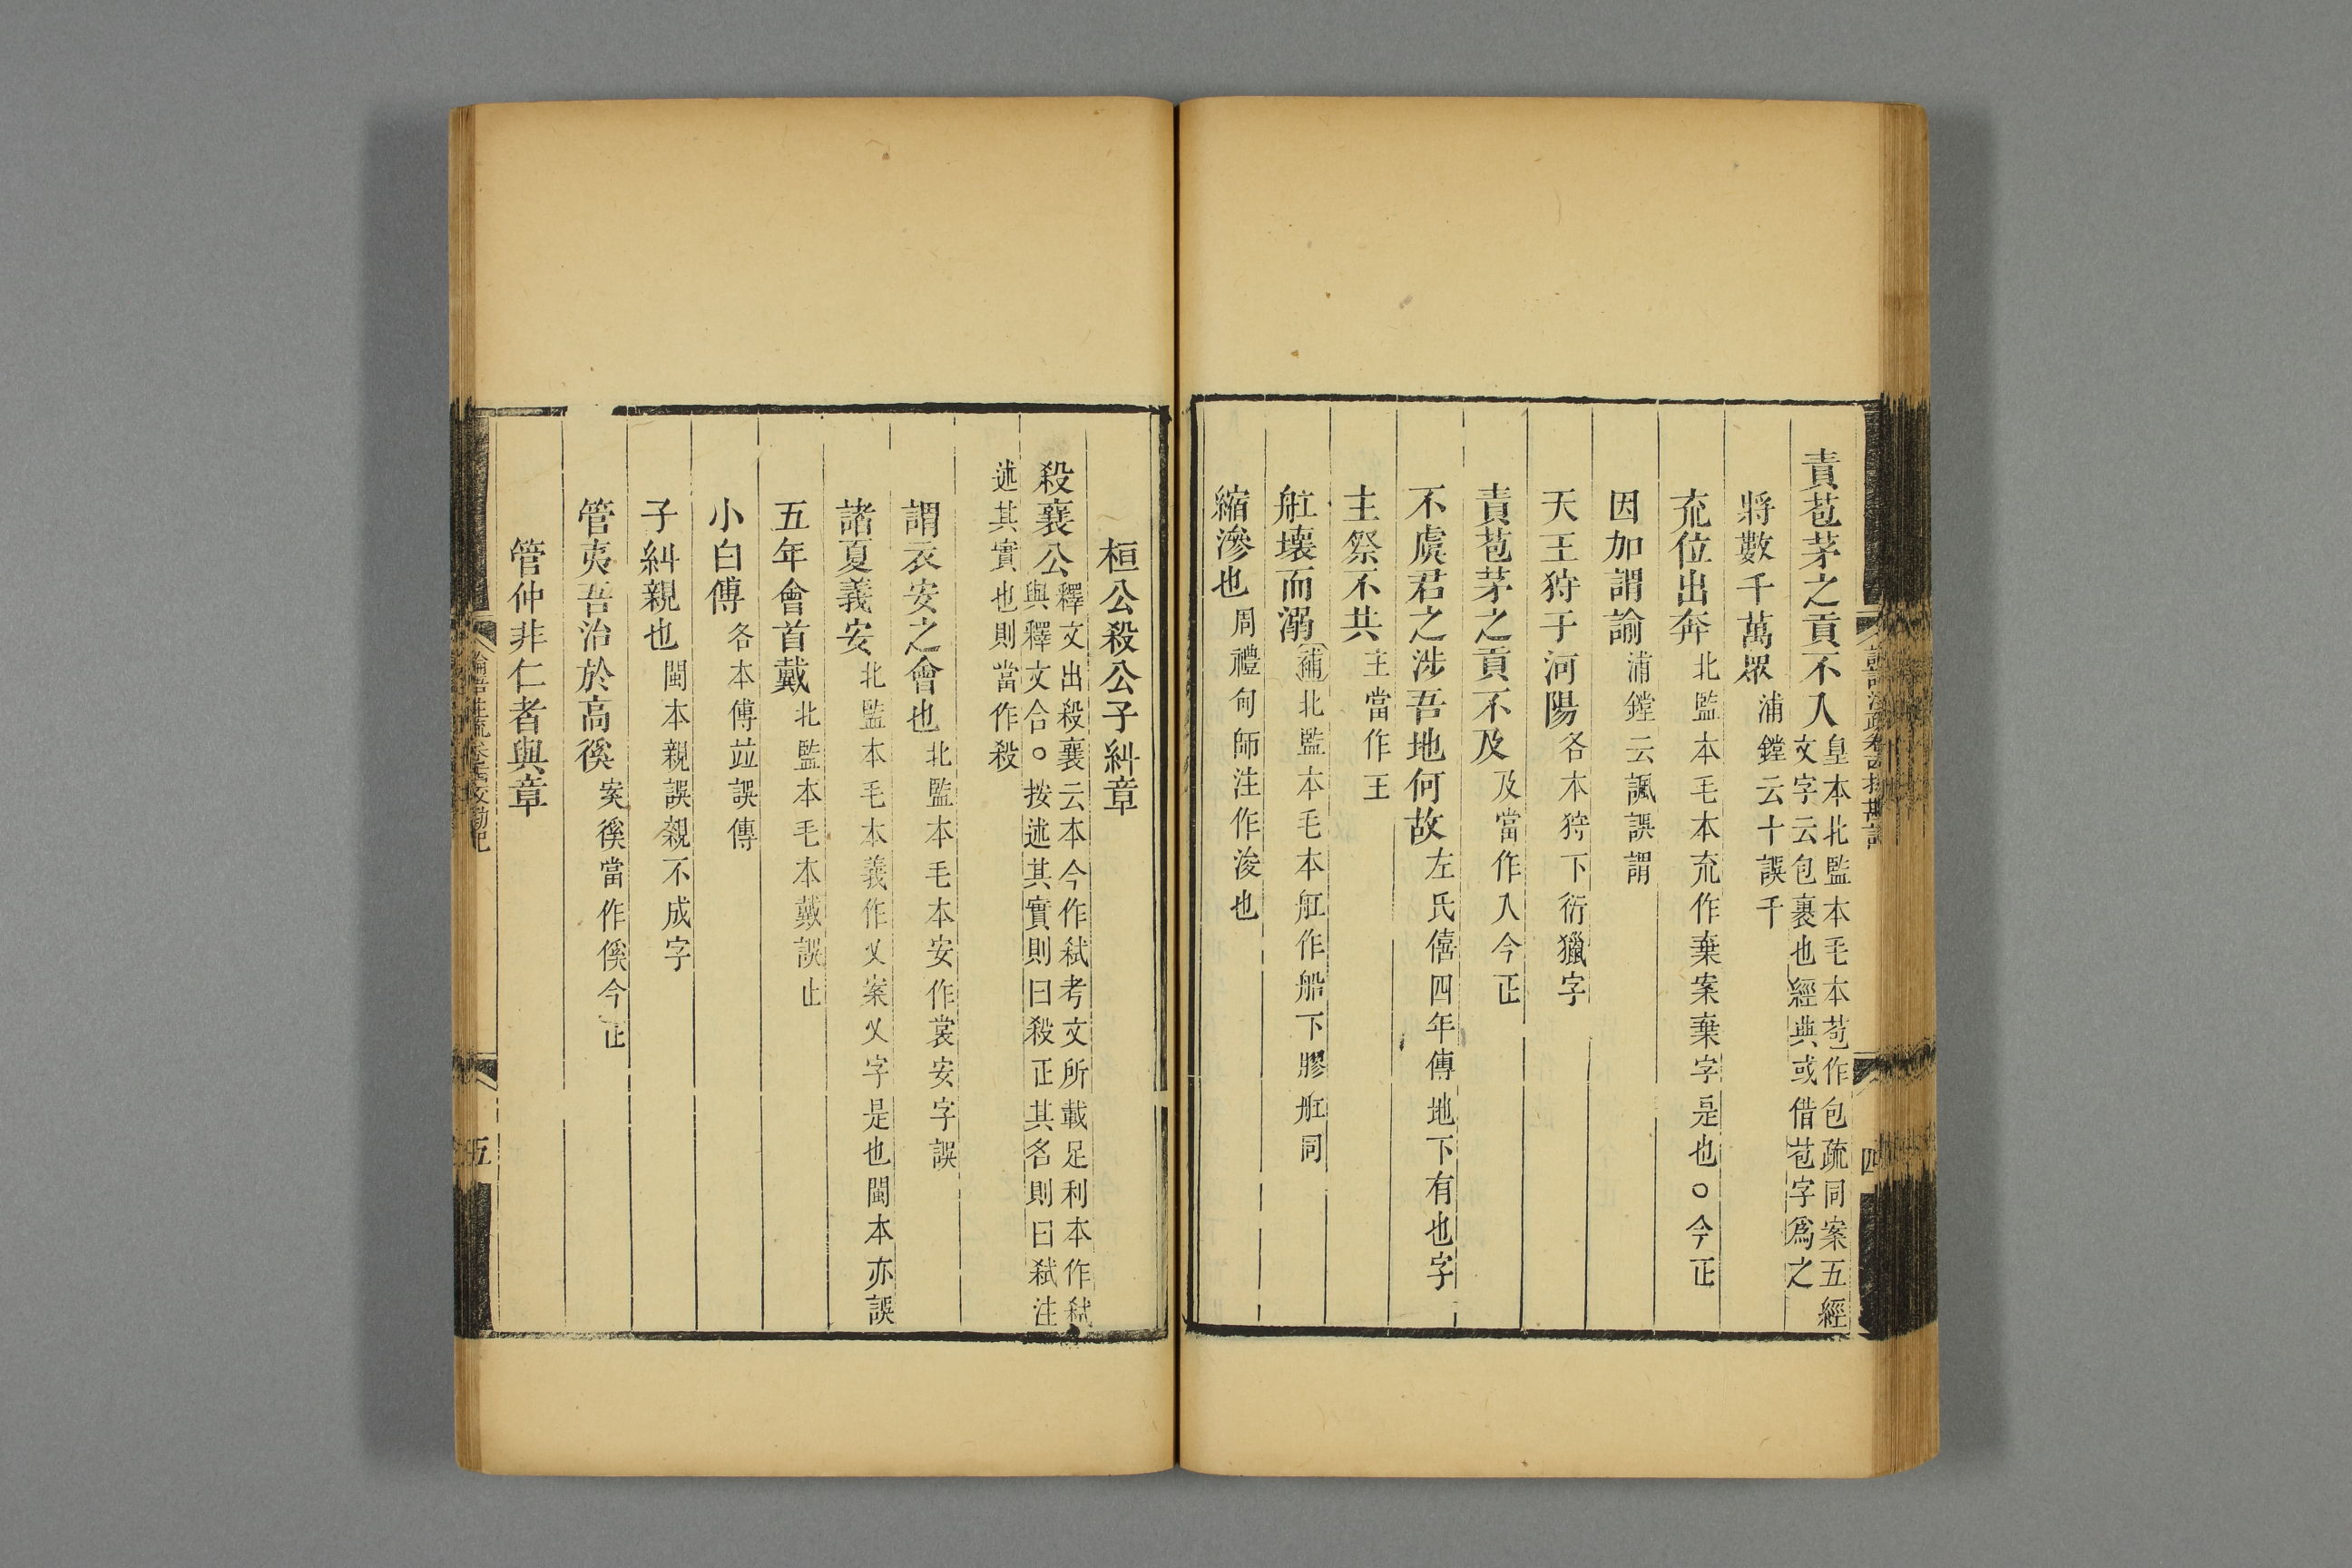 責苞茅之貢不入皇本北監本毛本苞作包疏同案五經
文字云包裹也經典或借苞字爲之
將數千萬眾浦鏜云十誤千
充位出奔北監本毛本充作棄案棄字是也○今正
因加謂諭浦鏜云諷誤謂
天王狩于河陽各本狩下衍獵字
責苞茅之貢不及及當作入今正
不虞君之涉吾地何故左氏僖四年傳地下有也字
主祭不共主當作王
舡壞而溺補北監本毛本舡作船下膠舡同
縮滲也周禮甸師注作浚也
桓公殺公子糾章
殺襄公釋文出殺襄云本今作弒考文所載足利本作弒
與釋文合○按述其實則曰殺正其名則曰弒注
述其實也則當作殺
謂衣安之會也北監本毛本安作裳安字誤
諸夏義安北監本毛本義作乂案乂字是也閩本亦誤
五年會首戴北監本毛本戴誤止
小白傅各本傅竝誤傳
子糾親也閩本親誤親不成字
管夷吾治於高徯案徯當作傒今正
管仲非仁者與章
論語注疏卷十四校勘記
五
四